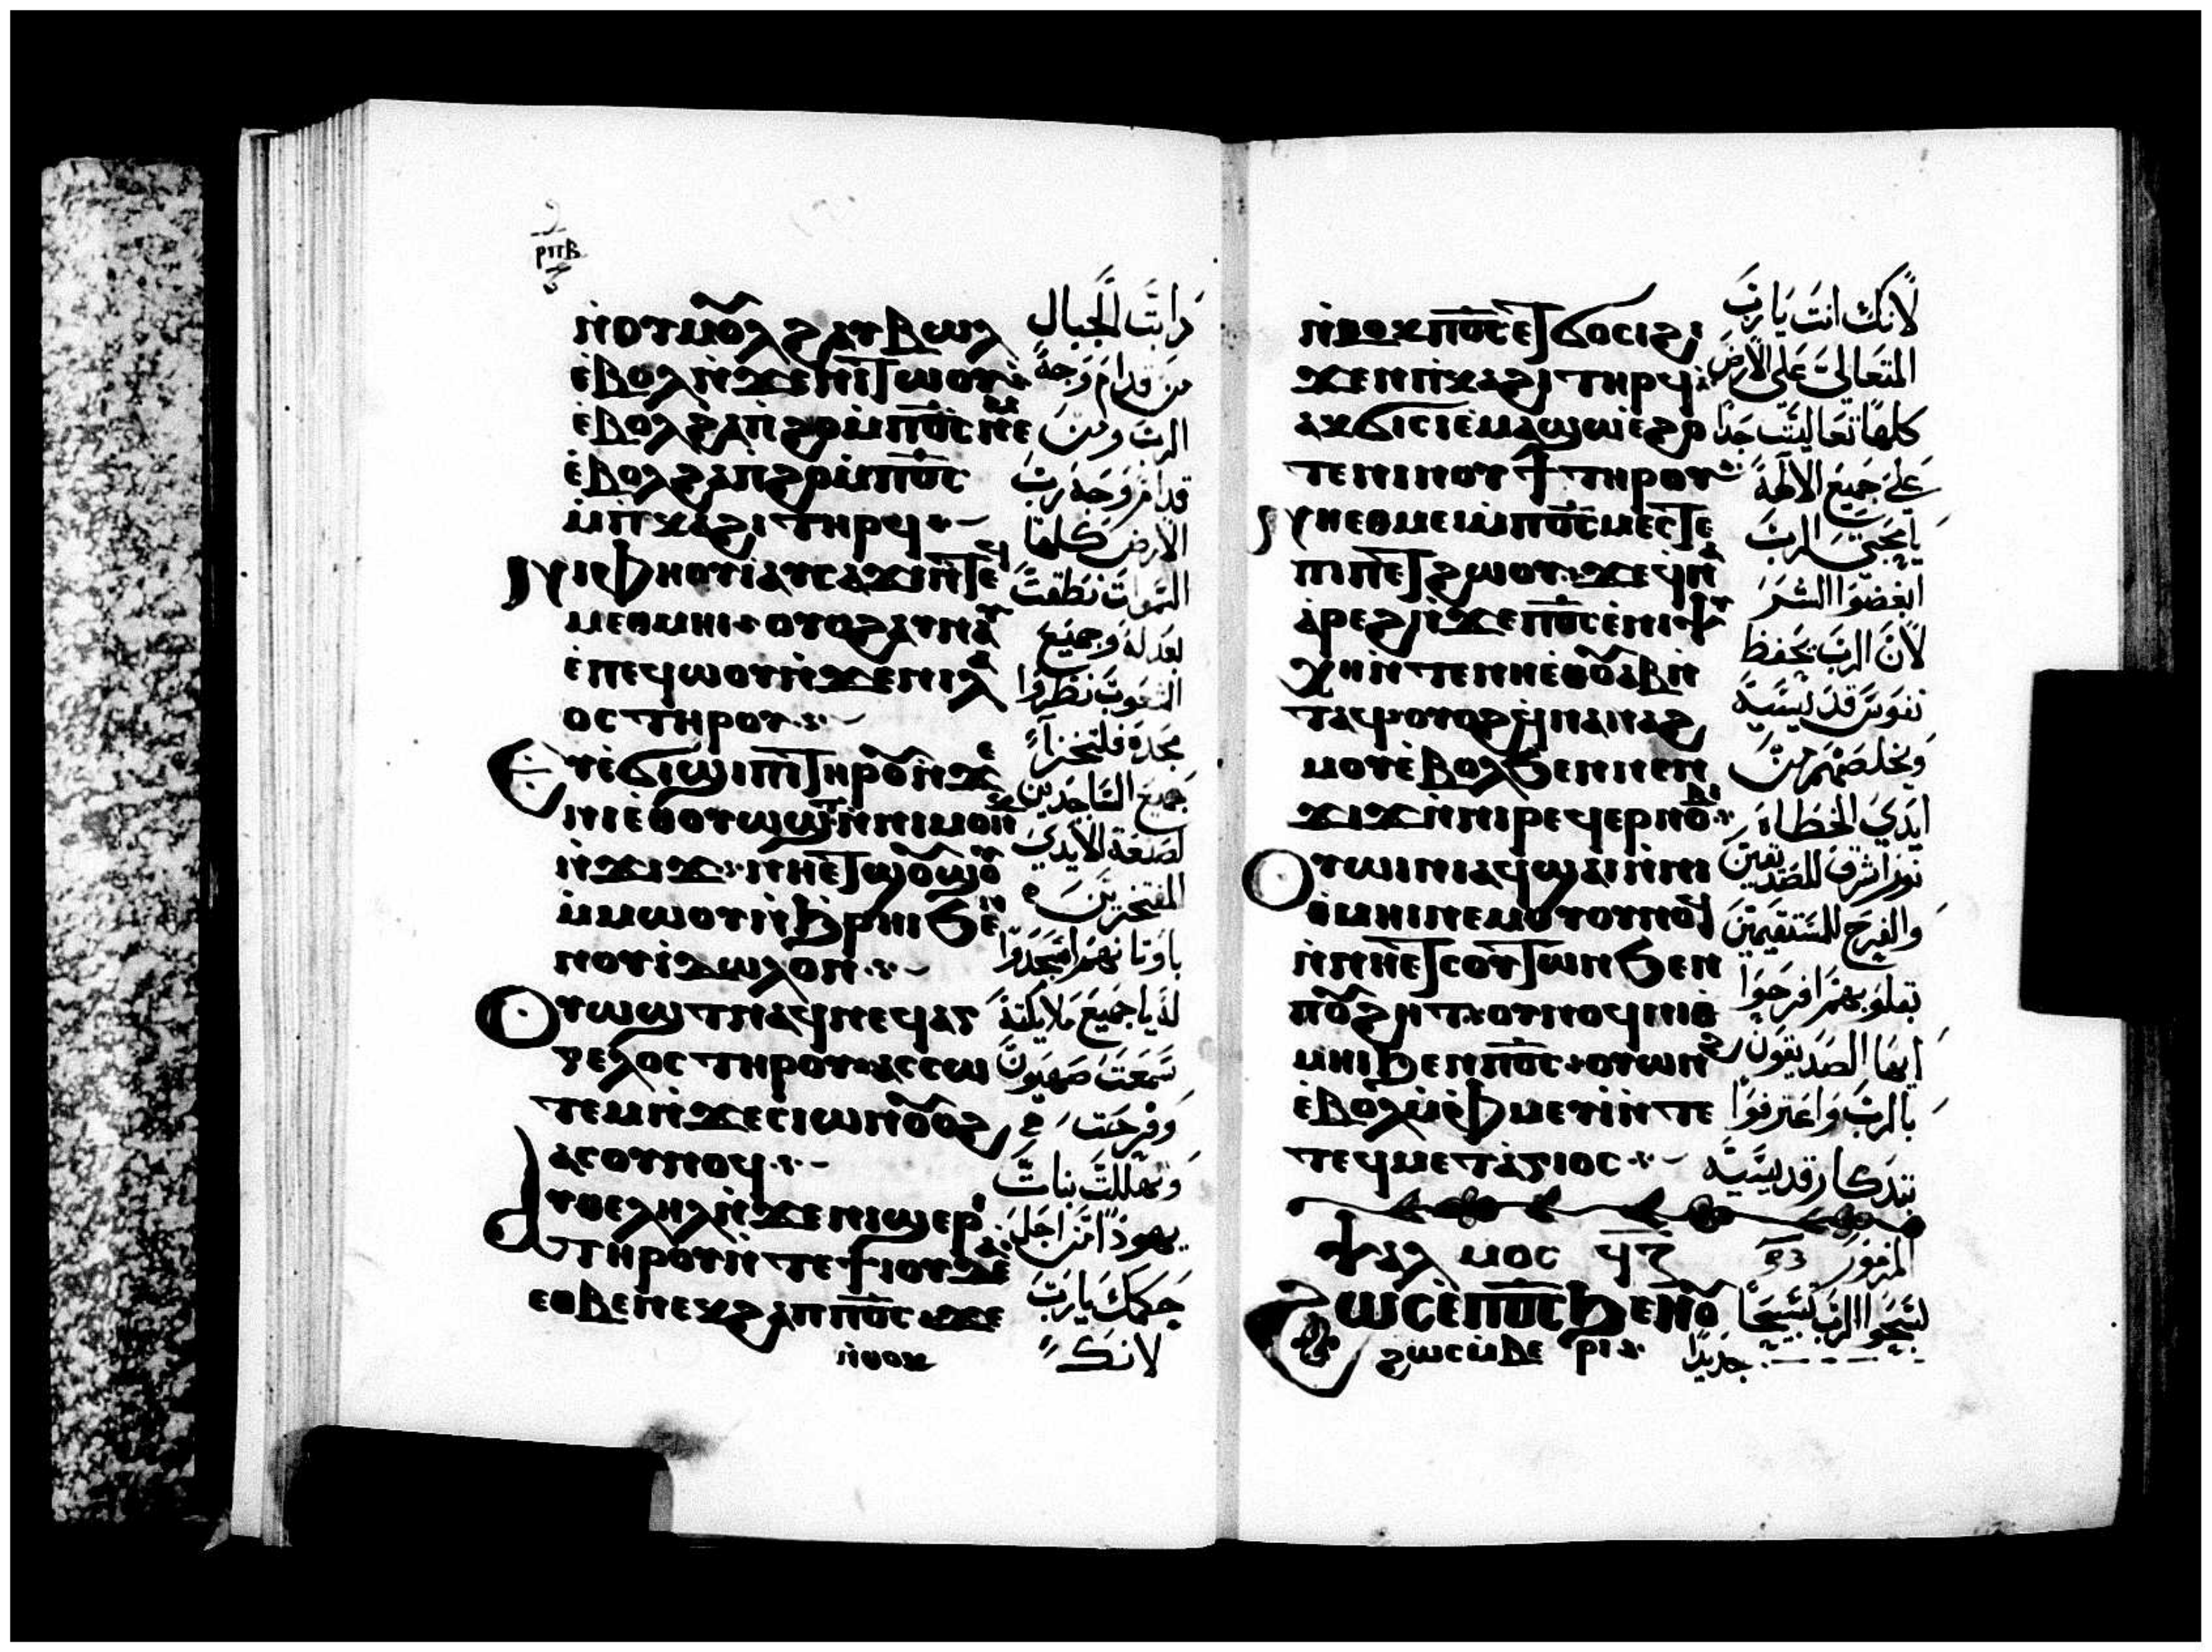 ⲣⲡⲃ
ⲛ̀ⲟⲩⲙⲟ̅ⲗϩ ⲁⲩⲃⲱⲗ
ⲉ̀ⲃⲟⲗ ⲛ̀ϫⲉⲛⲓⲧⲱⲟⲩ
ⲉ̀ⲃⲟⲗϩⲁⲡ̀ϩⲟ ⲙ̀ⲡⲟ̅ⲥ̅ ⲛⲉⲙ
ⲉ̀ⲃⲟⲗϩⲁⲡϩⲟ ⲙ̀ⲡⲟ̅ⲥ̅
ⲙ̀ⲡⲕⲁϩⲓ ⲧⲏⲣϥ
ⲛⲓⲫⲏⲟⲩⲓ ⲁⲩⲥⲁϫⲓ ⲛ̀ⲧⲉϥ
ⲙⲉⲑⲙⲏⲓ ⲟⲩⲟϩ ⲁⲩⲛⲁⲩ
ⲉ̀ⲡⲉϥⲱⲟⲩ ⲛ̀ϫⲉⲛⲓⲗⲁ
ⲟⲥ ⲧⲏⲣⲟⲩ
ⲉⲩⲉ̀ϭⲓϣⲓⲡⲓ ⲧⲏⲣⲟ̅ ⲛ̀ϫⲉ
ⲛⲏⲉⲑⲟⲩⲱϣⲧ ⲛ̀ⲛⲓⲙⲟⲩⲛⲕ
ⲛ̀ϫⲓϫ ⲛⲏⲉⲧϣⲟ̅ϣⲟⲩ
ⲙ̀ⲙⲱⲟⲩ ⲛ̀ϩⲣⲏⲓ ϧⲉⲛ
ⲛⲟⲩⲓⲇⲱⲗⲟⲛ
ⲟⲩⲱϣⲧ ⲛⲁϥ ⲛⲉϥⲁⲅ
ⲅⲉⲗⲟⲥ ⲧⲏⲣⲟⲩ ⲁⲥⲥⲱ
ⲧⲉⲙ ⲛ̀ϫⲉⲥⲓⲱⲛ ⲟ̅ⲟϩ
ⲁⲥⲟⲩⲛⲟϥ
ⲁⲩⲑⲉⲗⲏⲗ ⲛ̀ϫⲉⲛⲓϣⲉⲣⲓ
ⲧⲏⲣⲟⲩ ⲛ̀ⲧⲉϯⲓⲟⲩⲇⲉⲁ
ⲉⲑⲃⲉⲛⲉⲕϩⲁⲡ ⲡⲟ̅ⲥ̅ ϫⲉ
ⲛ̀ⲑⲟⲕ
ذابت الجبال
من قدام وجه
الرب ومن
قدام وجه رب
الارض كلها
السموات نطقت
بعدله وجميع
الشعوب نظروا
مجده فلتخزا
جميع الساجدين
لصنعة الايدي
المفتخرين
باوتانهم اسجدوا
له يا جميع ملايكته
سمعت صهيون
وفرحت
وتهللت بنات
يهوذا من اجل
حكمك يا رب
لانك
ⲛ̀ⲑⲟⲕ ⲡⲟ̅ⲥ̅ ⲉⲧϭⲟⲥⲓ ϩⲓ
ϫⲉⲛ ⲡ̀ⲕⲁϩⲓ ⲧⲏⲣϥ
ⲁⲕϭⲓⲥⲓ ⲉ̀ⲙⲁϣⲱ ⲉ̀ϩⲟ
ⲧⲉ ⲛⲓⲛⲟⲩϯ ⲧⲏⲣⲟⲩ
ⲛⲏⲉⲑⲙⲉⲓ ⲙ̀ⲡⲟ̅ⲥ̅ ⲙⲉⲥⲧⲉ
ⲡⲓⲡⲉⲧϩⲱⲟⲩ ϫⲉ ϥⲛⲁ
ⲁ̀ⲣⲉϩ ⲛ̀ϫⲉⲡⲟ̅ⲥ̅ ⲉ̀ⲛⲓⲯⲩ
ⲭⲏ ⲛ̀ⲧⲉⲛⲏⲉⲑⲟ̅ⲁⲃ ⲛ̀
ⲧⲁϥ ⲟⲩⲟϩ ϥ̀ⲛⲁⲛⲁϩ
ⲙⲟⲩ ⲉ̀ⲃⲟⲗ ϧⲉⲛ ⲛⲉⲛ
ϫⲓϫ ⲛ̀ⲛⲓⲣⲉϥⲉⲣⲛⲟⲃⲓ
ⲟⲩⲱⲓⲛⲓ ⲁϥϣⲁⲓ ⲛ̀ⲛⲓ
ⲑⲙⲏⲓ ⲛⲉⲙ ⲟⲩⲟⲩⲛⲟϥ
ⲛ̀ⲛⲏⲉⲧⲥⲟⲩⲧⲱⲛ ϧⲉⲛ
ⲡⲟ̅ϩⲏⲧ ⲟⲩⲛⲟϥ ⲛⲓⲑ
ⲙⲏⲓ ϧⲉⲛ ⲡⲟ̅ⲥ̅ ⲟⲩⲱⲛϩ
ⲉ̀ⲃⲟⲗ ⲙ̀ⲫ̀ⲙⲉⲩⲓ ⲛ̀ⲧⲉ
ⲧⲉϥⲙⲉⲧⲁⲅⲓⲟⲥ
ⲯⲁⲗⲙⲟⲥ ϥⲍ
ϩⲱⲥ ⲉ̀ⲡⲟ̅ⲥ̅ ϧⲉⲛ ⲟ̅
ϩⲱⲥ ⲙ̀ⲃⲉⲣⲓ
لانك انت يا رب
المتعالي على الارض
كلها تعاليت جدا
على جميع الالهة
يا محبي الرب
ابغضوا الشر
لان الرب يحفظ
نفوس قديسيه
ويخلصهم من
ايدي الخطاة
نور اشرق للصديقين
والفرح للمستقيمين
بقلوبهم افرحوا
ايها الصديقون
بالرب واعترفوا
بتذكار قديسيته
المزمور
سبحوا الرب تسبيحا
جديدا